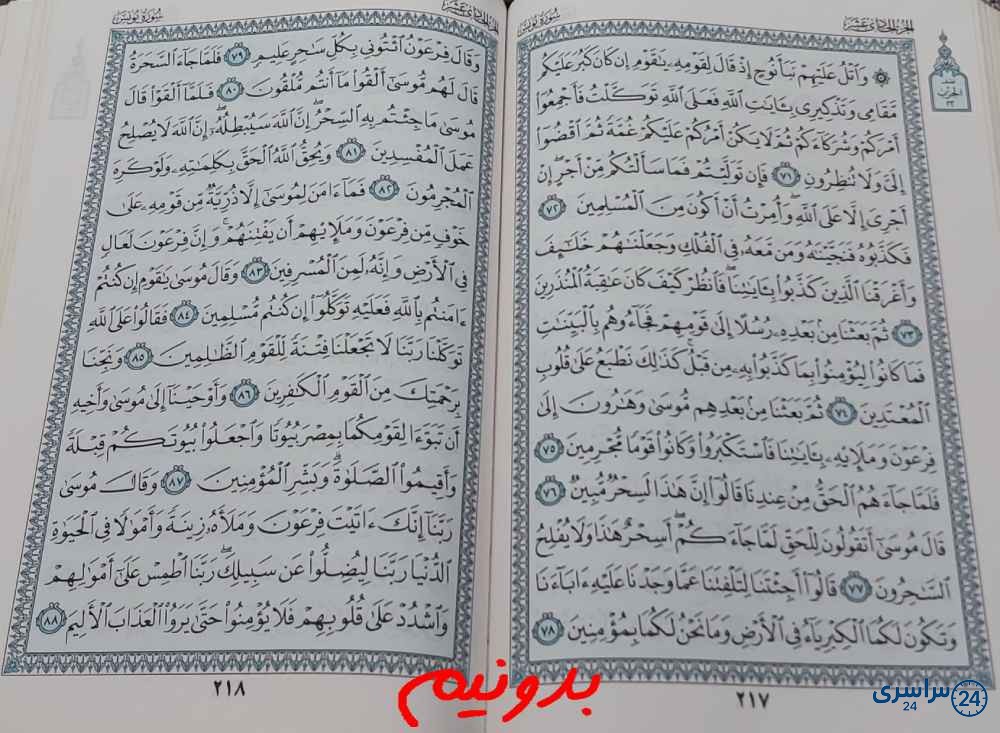 الجزء الحادي عشر
سورة يونس
نصف
الحزب
٢٢
۞ وَٱتۡلُ عَلَيۡهِمۡ نَبَأَ نُوحٍ إِذۡ قَالَ لِقَوۡمِهِۦ يَٰقَوۡمِ إِن كَانَ كَبُرَ عَلَيۡكُم
مَّقَامِي وَتَذۡكِيرِي بِـَٔايَٰتِ ٱللَّهِ فَعَلَى ٱللَّهِ تَوَكَّلۡتُ فَأَجۡمِعُوٓاْ
أَمۡرَكُمۡ وَشُرَكَآءَكُمۡ ثُمَّ لَا يَكُنۡ أَمۡرُكُمۡ عَلَيۡكُمۡ غُمَّةٗ ثُمَّ ٱقۡضُوٓاْ
إِلَيَّ وَلَا تُنظِرُونِ ٧١ فَإِن تَوَلَّيۡتُمۡ فَمَا سَأَلۡتُكُم مِّنۡ أَجۡرٍۖ إِنۡ
أَجۡرِيَ إِلَّا عَلَى ٱللَّهِۖ وَأُمِرۡتُ أَنۡ أَكُونَ مِنَ ٱلۡمُسۡلِمِينَ ٧٢
فَكَذَّبُوهُ فَنَجَّيۡنَٰهُ وَمَن مَّعَهُۥ فِي ٱلۡفُلۡكِ وَجَعَلۡنَٰهُمۡ خَلَٰٓئِفَ
وَأَغۡرَقۡنَا ٱلَّذِينَ كَذَّبُواْ بِـَٔايَٰتِنَاۖ فَٱنظُرۡ كَيۡفَ كَانَ عَٰقِبَةُ ٱلۡمُنذَرِينَ
٧٣ ثُمَّ بَعَثۡنَا مِنۢ بَعۡدِهِۦ رُسُلًا إِلَىٰ قَوۡمِهِمۡ فَجَآءُوهُم بِٱلۡبَيِّنَٰتِ
فَمَا كَانُواْ لِيُؤۡمِنُواْ بِمَا كَذَّبُواْ بِهِۦ مِن قَبۡلُۚ كَذَٰلِكَ نَطۡبَعُ عَلَىٰ قُلُوبِ
ٱلۡمُعۡتَدِينَ ٧٤ ثُمَّ بَعَثۡنَا مِنۢ بَعۡدِهِم مُّوسَىٰ وَهَٰرُونَ إِلَىٰ
فِرۡعَوۡنَ وَمَلَإِيْهِۦ بِـَٔايَٰتِنَا فَٱسۡتَكۡبَرُواْ وَكَانُواْ قَوۡمٗا مُّجۡرِمِينَ ٧٥
فَلَمَّا جَآءَهُمُ ٱلۡحَقُّ مِنۡ عِندِنَا قَالُوٓاْ إِنَّ هَٰذَا لَسِحۡرٞ مُّبِينٞ ٧٦
قَالَ مُوسَىٰٓ أَتَقُولُونَ لِلۡحَقِّ لَمَّا جَآءَكُمۡۖ أَسِحۡرٌ هَٰذَا وَلَا يُفۡلِحُ
ٱلسَّٰحِرُونَ ٧٧ قَالُوٓاْ أَجِئۡتَنَا لِتَلۡفِتَنَا عَمَّا وَجَدۡنَا عَلَيۡهِ ءَابَآءَنَا
وَتَكُونَ لَكُمَا ٱلۡكِبۡرِيَآءُ فِي ٱلۡأَرۡضِ وَمَا نَحۡنُ لَكُمَا بِمُؤۡمِنِينَ ٧٨
٢١٧
الجزء الحادي عشر
سورة يونس
وَقَالَ فِرۡعَوۡنُ ٱئۡتُونِي بِكُلِّ سَٰحِرٍ عَلِيمٖ ٧٩ فَلَمَّا جَآءَ ٱلسَّحَرَةُ
قَالَ لَهُم مُّوسَىٰٓ أَلۡقُواْ مَآ أَنتُم مُّلۡقُونَ ٨٠ فَلَمَّآ أَلۡقَوۡاْ قَالَ
مُوسَىٰ مَا جِئۡتُم بِهِ ٱلسِّحۡرُۖ إِنَّ ٱللَّهَ سَيُبۡطِلُهُۥٓ إِنَّ ٱللَّهَ لَا يُصۡلِحُ
عَمَلَ ٱلۡمُفۡسِدِينَ ٨١ وَيُحِقُّ ٱللَّهُ ٱلۡحَقَّ بِكَلِمَٰتِهِۦ وَلَوۡ كَرِهَ
ٱلۡمُجۡرِمُونَ ٨٢ فَمَآ ءَامَنَ لِمُوسَىٰٓ إِلَّا ذُرِّيَّةٞ مِّن قَوۡمِهِۦ عَلَىٰ
خَوۡفٖ مِّن فِرۡعَوۡنَ وَمَلَإِيْهِمۡ أَن يَفۡتِنَهُمۡۚ وَإِنَّ فِرۡعَوۡنَ لَعَالٖ
فِي ٱلۡأَرۡضِ وَإِنَّهُۥ لَمِنَ ٱلۡمُسۡرِفِينَ ٨٣ وَقَالَ مُوسَىٰ يَٰقَوۡمِ إِن كُنتُمۡ
ءَامَنتُم بِٱللَّهِ فَعَلَيۡهِ تَوَكَّلُوٓاْ إِن كُنتُم مُّسۡلِمِينَ ٨٤ فَقَالُواْ عَلَى ٱللَّهِ
تَوَكَّلۡنَا رَبَّنَا لَا تَجۡعَلۡنَا فِتۡنَةٗ لِّلۡقَوۡمِ ٱلظَّٰلِمِينَ ٨٥ وَنَجِّنَا
بِرَحۡمَتِكَ مِنَ ٱلۡقَوۡمِ ٱلۡكَٰفِرِينَ ٨٦ وَأَوۡحَيۡنَآ إِلَىٰ مُوسَىٰ وَأَخِيهِ
أَن تَبَوَّءَا لِقَوۡمِكُمَا بِمِصۡرَ بُيُوتٗا وَٱجۡعَلُواْ بُيُوتَكُمۡ قِبۡلَةٗ
وَأَقِيمُواْ ٱلصَّلَوٰةَۗ وَبَشِّرِ ٱلۡمُؤۡمِنِينَ ٨٧ وَقَالَ مُوسَىٰ
رَبَّنَآ إِنَّكَ ءَاتَيۡتَ فِرۡعَوۡنَ وَمَلَأَهُۥ زِينَةٗ وَأَمۡوَٰلٗا فِي ٱلۡحَيَوٰةِ
ٱلدُّنۡيَا رَبَّنَا لِيُضِلُّواْ عَن سَبِيلِكَۖ رَبَّنَا ٱطۡمِسۡ عَلَىٰٓ أَمۡوَٰلِهِمۡ
وَٱشۡدُدۡ عَلَىٰ قُلُوبِهِمۡ فَلَا يُؤۡمِنُواْ حَتَّىٰ يَرَوُاْ ٱلۡعَذَابَ ٱلۡأَلِيمَ ٨٨
٢١٨
بدونیم
سراسری
24
24